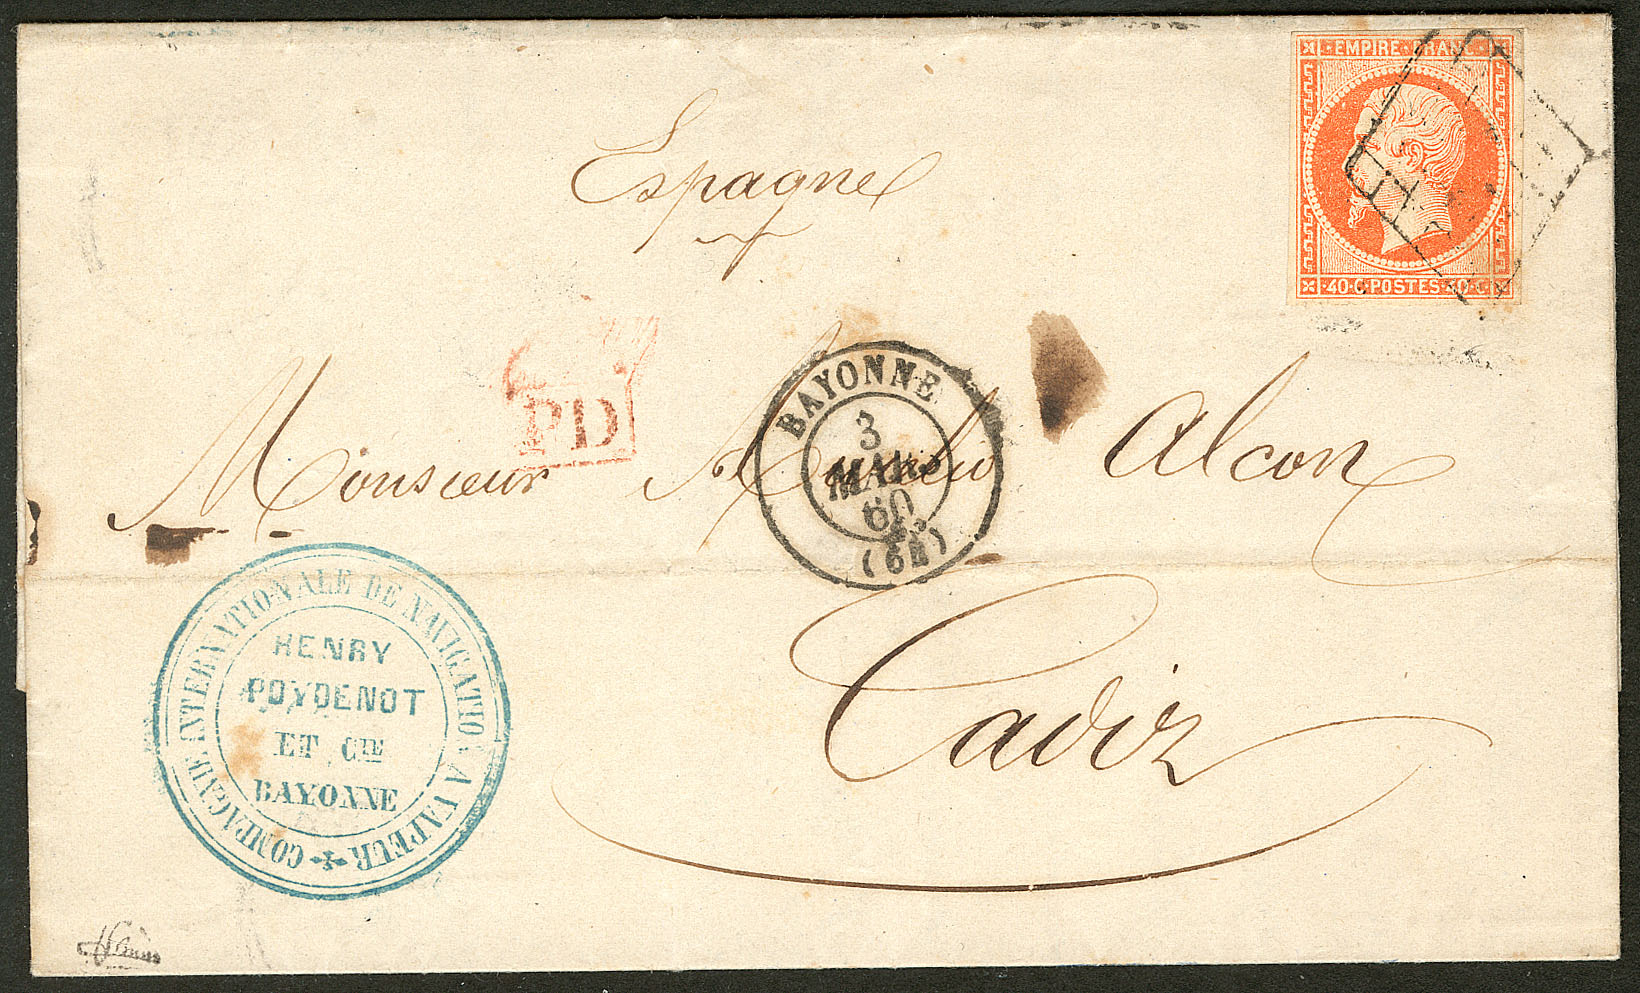 EMPIRE FRANC
Espagne
40·C·POSTES·40·C
PD
BAYONNE
3
MARS
60
(64)
Monsieur Alcon
Cadiz
COMPAGNIE INTERNATIONALE DE NAVIGATION A VAPEUR
HENRY
POYDENOT
ET CIE
BAYONNE